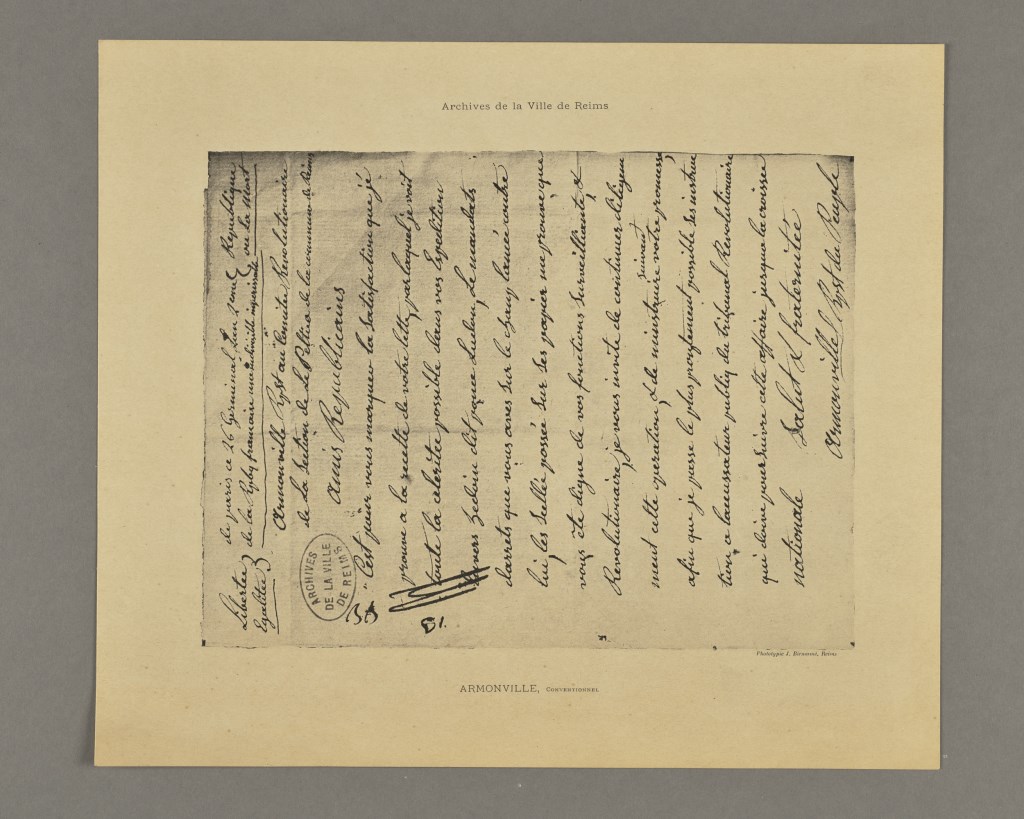 Archives de la Ville de Reims
Liberté
Egalitée
de paris ce 26 Germinal, l'an 2eme Republique
de la Rpbq francaise une indivisible imperissable ou la Mort
Armonville Rpst au Comitee Revolutionaire
de la Section de Le Peltier de la commune de Reims
amis Republicains
C'est pour vous marquer la satisfaction que jé
prouve a la suitte de votre lettre, par laquel je voit
toute la celeritee possible dans vos Expedition
Envers hedoin dit ponce Ludon, Le mandats
darrets que vous avés sur le champ lancée contre
lui, les Sellée possée sur ses papier me prouve que
vous ete digne de vos fonctions surveilliante &
Revolutionaire, je vous invite de continuer diligem
suivant
ment cette operation, & de m'instruire votre promesse,
afin que je passe le plus promptement possible ses instruc
tion, a laccussateur publiq du tribunal Revolutionaire
qui doive poursuivre cette affaire jusque la croissee
nationale
Salut & fraternitée
Armonville Rpst du Peuple
ARCHIVES
DE LA VILLE
DE REIMS
81.
Phototypie J. Bienaimé, Reims
ARMONVILLE, Conventionnel